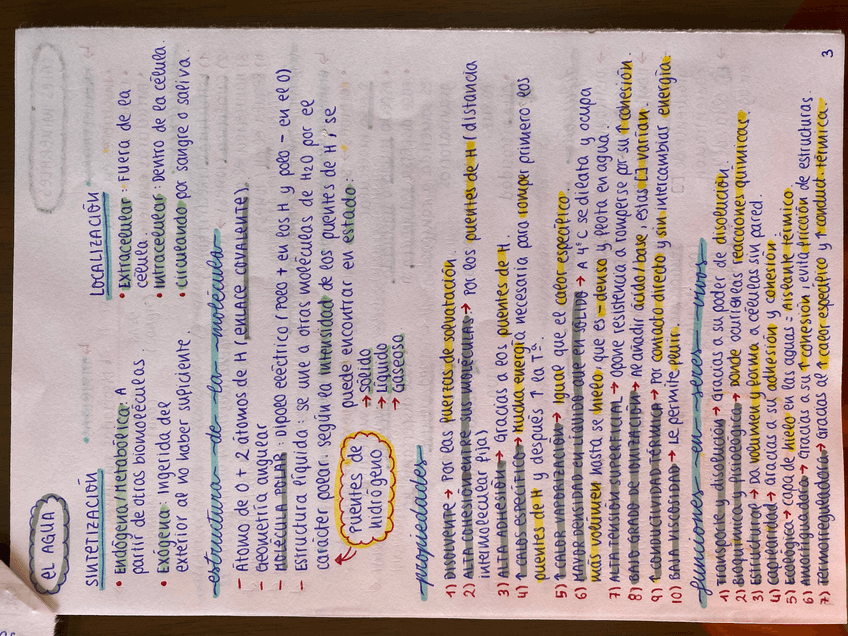 EL AGUA
SINTETIZACIÓN
• Endógena/Metabólica: A
partir de otras biomoléculas
• Exógena: ingerida del
exterior al no haber suficiente.
LOCALIZACIÓN
• Extracelular: Fuera de la
célula
• Intracelular: Dentro de la célula.
• Circulando por sangre o saliva.
estructura de la molécula
- Átomo de O + 2 átomos de H (enlace covalente).
- Geometría angular
- MOLÉCULA POLAR: Dipolo eléctrico (Polo + en los H y polo - en el O)
- Estructura líquida: se une a otras moléculas de H2O por el
carácter polar. según la intensidad de los puentes de H, se
puede encontrar en estado:
→ Sólido
→ Líquido
→ Gaseoso
Puentes de
hidrógeno
propiedades
1) DISOLVENTE → Por las Puertas de solvatación.
2) ALTA COHESIÓN ENTRE SUS MOLÉCULAS → Por los puentes de H (distancia
intermolecular fija)
3) ALTA ADHESIÓN → Gracias a los puentes de H.
4) ↑ CALOR ESPECÍFICO → Mucha energía necesaria para romper primero los
puentes de H y después ↑ la Tª.
5) ↑ CALOR VAPORIZACIÓN → Igual que el calor específico.
6) MAYOR DENSIDAD EN LÍQUIDO QUE EN SÓLIDO → A 4º C se dilata y ocupa
más volumen hasta se hielo, que es - denso y flota en agua.
7) ALTA TENSIÓN SUPERFICIAL → opone resistencia a romperse por su ↑ cohesión.
8) BAJO GRADO DE IONIZACIÓN → Al añadir ácido/base, estas [] varían.
9) ↑ CONDUCTIVIDAD TÉRMICA → Por contacto directo y sin intercambiar energía.
10) BAJA VISCOSIDAD → Le permite fluir.
funciones en seres vivos
1) Transporte y disolución → Gracias a su poder de disolución.
2) Bioquímica y fisiológica → Donde ocurren las reacciones químicas.
3) Estructural → Da volumen y forma a células sin pared.
4) Capilaridad → Gracias a su adhesión y cohesión.
5) Ecológica → capa de hielo en las aguas = Aislante térmico.
6) Amortiguadora → Gracias a su ↑ cohesión, evita fricción de estructuras.
7) Termorreguladora → Gracias al ↑ calor específico y ↑ conduct. térmica.
3